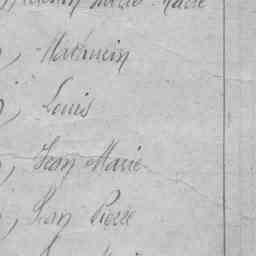 Marie
, Mathurin
, Louis
, Jean Marie
, Jean Pierre